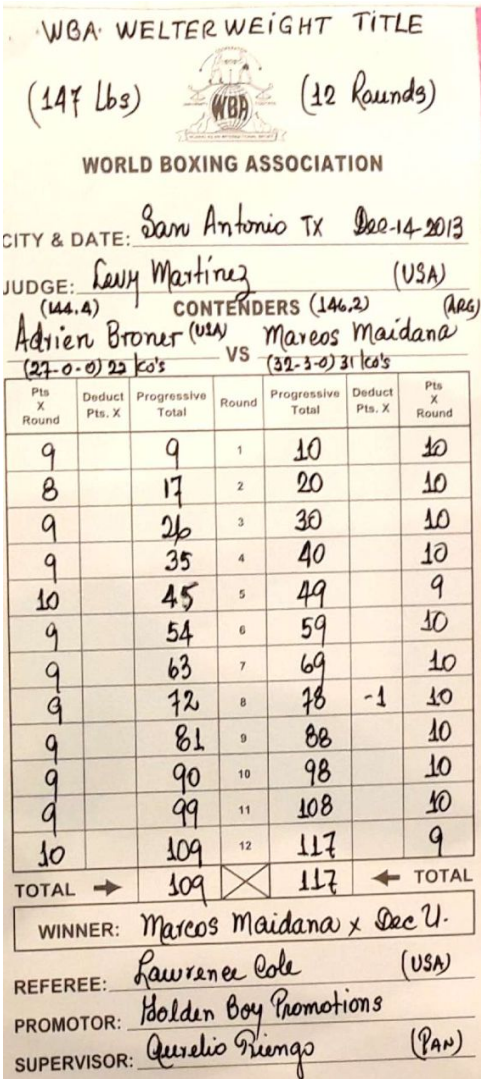 WBA WELTERWEIGHT TITLE
(147 Lbs) WBA (12 Rounds)
WORLD BOXING ASSOCIATION
CITY & DATE: San Antonio TX Dec-14-2013
JUDGE: Levy Martínez (USA)
(144.4) CONTENDERS (146.2) (ARG)
Adrien Broner (USA) VS Marcos Maidana
(27-0-0) 22 KO's (32-3-0) 31 KO's
Pts X Round Deduct Pts. X Progressive Total Round Progressive Total Deduct Pts. X Pts X Round
9 9 1 10 10
8 17 2 20 10
9 26 3 30 10
9 35 4 40 10
10 45 5 49 9
9 54 6 59 10
9 63 7 69 10
9 72 8 78 -1 10
9 81 9 88 10
9 90 10 98 10
9 99 11 108 10
10 109 12 117 9
TOTAL → 109 117 ← TOTAL
WINNER: Marcos Maidana x Dec U.
REFEREE: Lawrence Cole (USA)
PROMOTOR: Golden Boy Promotions
SUPERVISOR: Aurelio (PAN)